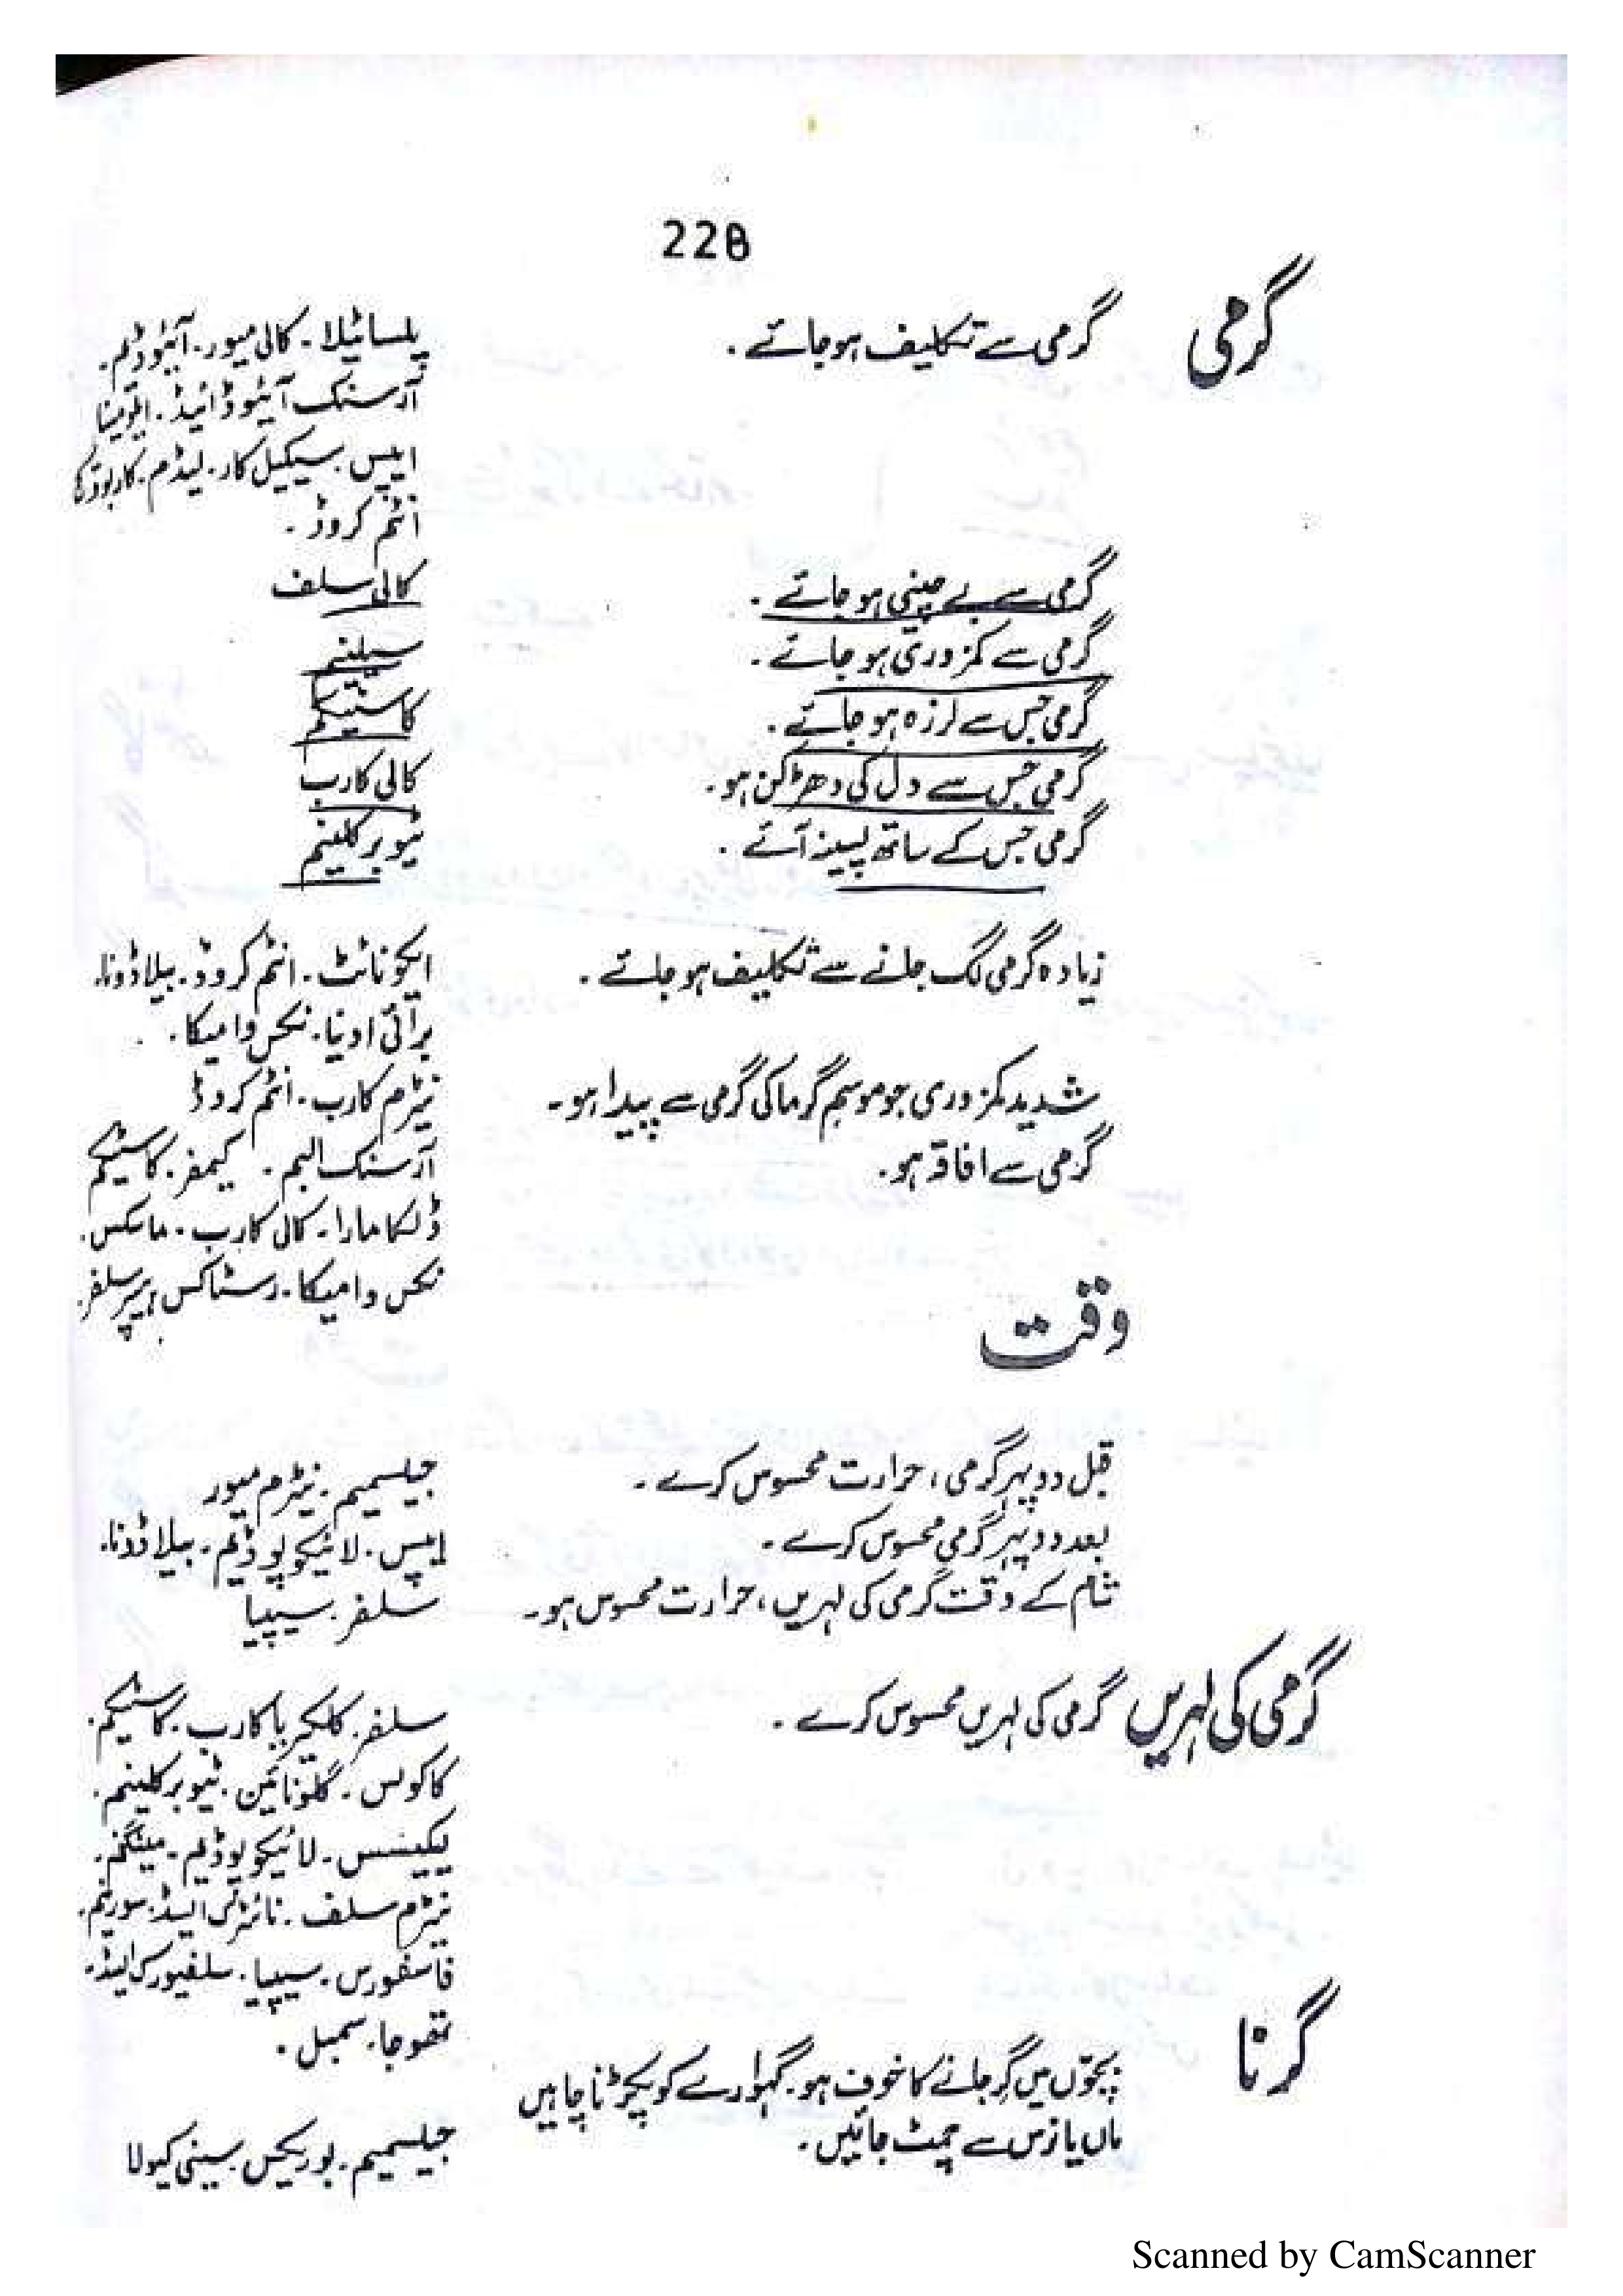 228
گرمی
گرمی سے تکلیف ہو جائے ۔ پلساٹیلا ۔ کالی میور ۔ آئیوڈیم ۔
آرسنک آئیوڈائیڈ ۔
ایپس ۔ سیکیل کار ۔ لیڈم ۔
انٹم کروڈ ۔
گرمی سے بے چینی ہو جائے ۔ کالی سلف
گرمی سے کمزوری ہو جائے ۔ سیلینیم
گرمی جس سے لرزہ ہو جائے ۔ کاسٹیکم
گرمی جس سے دل کی دھڑکن ہو ۔ کالی کارب
گرمی جس کے ساتھ پسینہ آئے ۔ ٹیوبرکلینم
زیادہ گرمی لگ جانے سے تکلیف ہو جائے ۔ ایکونائٹ ۔ انٹم کروڈ ۔ بیلاڈونا ۔
برائی اونیا ۔ نکس وامیکا ۔
شدید کمزوری جو موسم گرما کی گرمی سے پیدا ہو ۔ نیٹرم کارب ۔ انٹم کروڈ
گرمی سے افاقہ ہو ۔ آرسنک البم ۔ کیمفر ۔ کاسٹیکم
ڈلکامارا ۔ کالی کارب ۔ ماسکس ۔
نکس وامیکا ۔ رسٹاکس ۔ ہیپر سلفر ۔
وقت
قبل دوپہر گرمی ، حرارت محسوس کرے ۔ جیلسیمیم ۔ نیٹرم میور
بعد دوپہر گرمی محسوس کرے ۔ ایپس ۔ لائیکوپوڈیم ۔ بیلاڈونا ۔
شام کے وقت گرمی کی لہریں ، حرارت محسوس ہو ۔ سلفر ۔ سیپیا
گرمی کی لہریں گرمی کی لہریں محسوس کرے ۔ سلفر ۔ کلکیریا کارب ۔ کاسٹیکم ۔
کاکولس ۔ گلونائین ۔ ٹیوبرکلینم ۔
لیکیسس ۔ لائیکوپوڈیم ۔ مینگنم ۔
نیٹرم سلف ۔ نائٹرک ایسڈ ۔ سورینم ۔
فاسفورس ۔ سیپیا ۔ سلفیورک ایسڈ ۔
تھوجا ۔ سمبل ۔
گرنا
بچوں میں گر جانے کا خوف ہو ۔ گہوارے کو پکڑنا چاہیں
ماں یا نرس سے چمٹ جائیں ۔ جیلسیمیم ۔ بوریکس ۔ سینی کیولا
Scanned by CamScanner